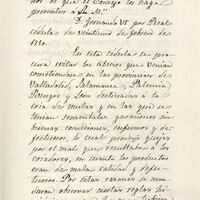 nor de que el Consejo las haga
presentes a S. M.
D. Fernando VI por Real
cedula de veintiuno de febrero de
1750
En esta cedula se pro-
curaba evitar los abusos que venian
cometiendose en las provincias de
Valladolid, Salamanca, Palencia
Burgos y Leon dedicadas a la
cria de mulas y en las que se
tenian sementales garañones sin
buenas condiciones, enfermos y de-
fectuosos, lo cual produjo quejas
por el mal que resultaba a los
criadores, en cuanto los productos
eran de mala calidad y defec-
tuosos. Por estas razones se man-
daron observar ciertas reglas